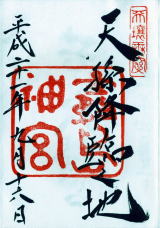 天孫降臨之地
神宮
平成二十一年九月十六日